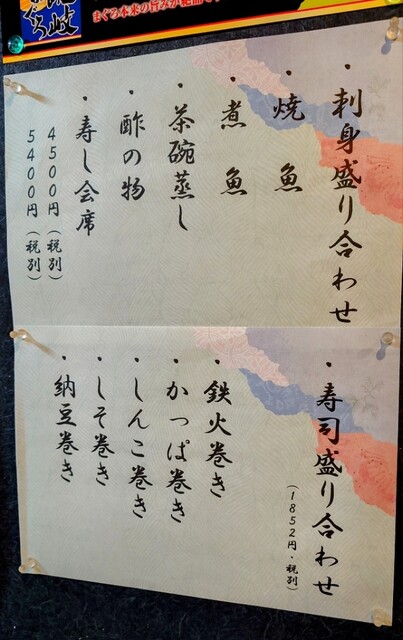 まぐろ本来の旨みが絶品
・刺身盛り合わせ
・焼魚
・煮魚
・茶碗蒸し
・酢の物
・寿し会席
4500円(税別)
5400円(税別)
・寿司盛り合わせ
(1852円・税別)
・鉄火巻き
・かっぱ巻き
・しんこ巻き
・しそ巻き
・納豆巻き